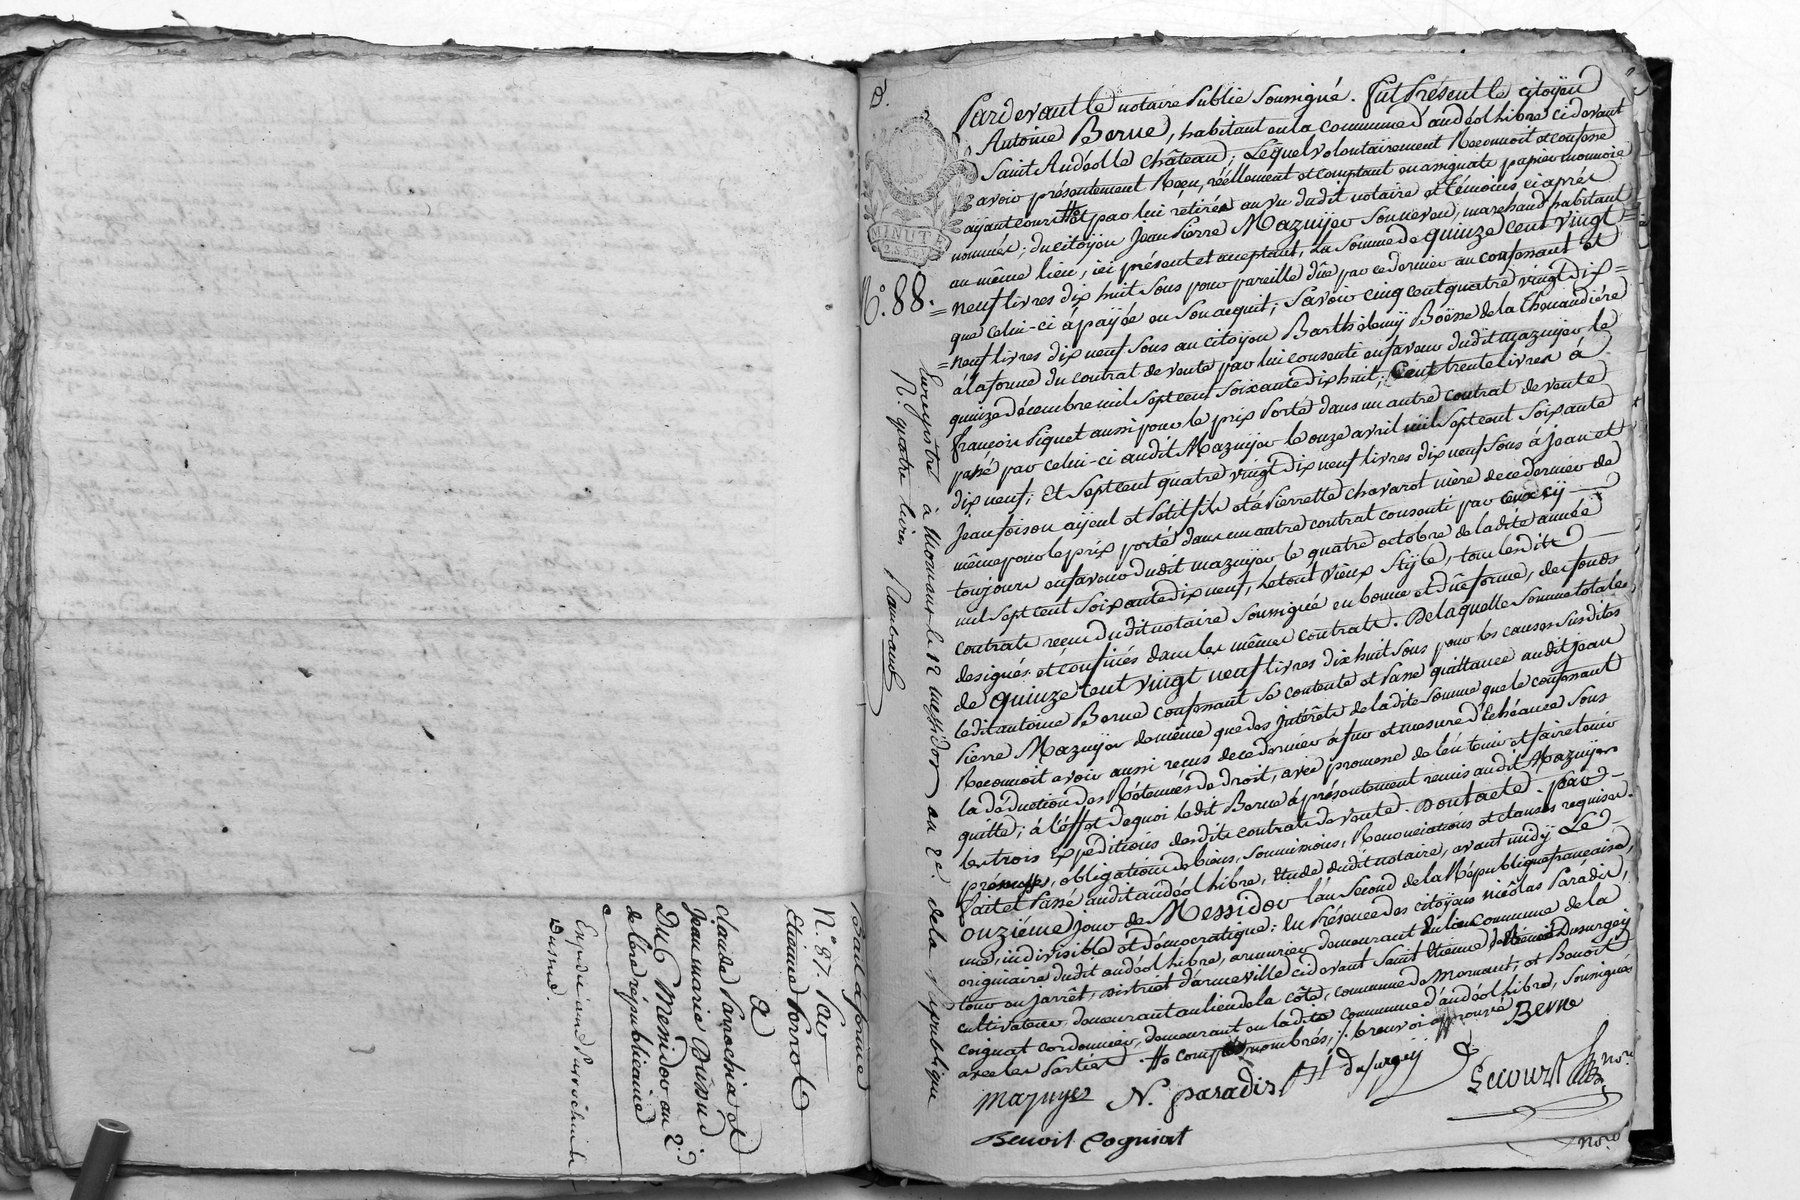 Bail à ferme
N.° 87. Par
Etienne Ferrot
à
Claude Parrochia et
Jean marie Dussud
Du 6 Messidor an 2.d
de l'ère républicaine
D.
MINUTE
N.° 88.
Enregistré à Mornant le 12 messidor an 2.d de la République
R. quatre livres
Pardevant le notaire Public Soussigné. fut Présent le citoÿen
Antoine Berne, habitant en la commune d'andéol libre ci devant
Saint Andéol le Château; Lequel volontairement Reconnoit et confesse
avoir présentement Reçu, réellement et comptant en assignats papier monnoie
aÿant cours # et par lui retirés au vu dudit notaire et témoins ci après
nommés; du citoÿen Jean Pierre Mazuÿer son neveu, marchand habitant
au même lieu, ici présent et acceptant, La Somme de quinze cent vingt =
= neuf livres dix huit Sous pour pareille dûe par ce dernier au confessant et
que celui-ci a païée en son acquit; Savoir cinq cent quatre vingt dix =
= neuf livres dix neuf Sous au citoÿen Barthélemÿ Boësse de la Thenaudiére
à la forme du contrat de vente par lui consenti en faveur dudit mazuÿer le
quinze décembre mil Sept cent Soixante dix huit; Cent trente livres à
françois Piquet aussi pour le prix Porté dans un autre contrat de vente
passé par celui-ci audit Mazuÿer le onze avril mil Sept cent Soixante
dix neuf; Et Sept cent quatre vingt dix neuf livres dix neuf Sous à Jean et
Jean foison aÿeul et Petit fils et à Pierrette chavarot mère de ce dernier de
même pour le prix porté dans un autre contrat consenti par ceux cÿ
toujours en faveur dudit mazuÿer le quatre octobre de ladite année
mil Sept cent Soixante dix neuf, le tout vieux Stÿle, tous lesdits
contrats reçus dudit notaire Soussigné en bonne et dûe forme, des fonds
designés et confinés dans les mêmes contrats. De laquelle Somme totale
de quinze cent vingt neuf livres dix huit Sous pour les causes Susdites
ledit antoine Berne confessant se contente et Passe quittance audit Jean
Pierre Mazuÿer de même que des intérêts de ladite Somme que le confessant
Reconnoit avoir aussi reçus de ce dernier à fur et mesure d'Echéance Sous
la déduction des Retenues de droit, avec promesse de l'en tenir et faire tenir
quitte; à l'éffet de quoi ledit Berne a présentement remis audit Mazuÿer
les trois Expéditions desdits contrats de vente. Dont acte. Par
promesse, obligations de biens, Soumissions, Renonciations et clauses requises.
Fait et Passé audit andéol libre, Etude dudit notaire, avant midÿ Le
onziéme jour de Messidor l'an Second de la République française,
une, indivisible et démocratique; En Présence des citoÿens nicolas Paradis,
originaire dudit andéol libre, armurier demeurant du lieu commune de la
tour en Jarrêt, District d'armeville ci devant Saint Etienne, Dusurgeÿ
cultivateur, demeurant au lieu de la côte, commune de Mornant, et Benoit
Cogniat cordonnier, demeurant en ladite commune d'andéol libre, Soussignés
avec les Parties. # comptés nombrés, ./. le renvoi approuvé Berne
Mazuyer N. paradis dusurgey
Benoit Cogniat